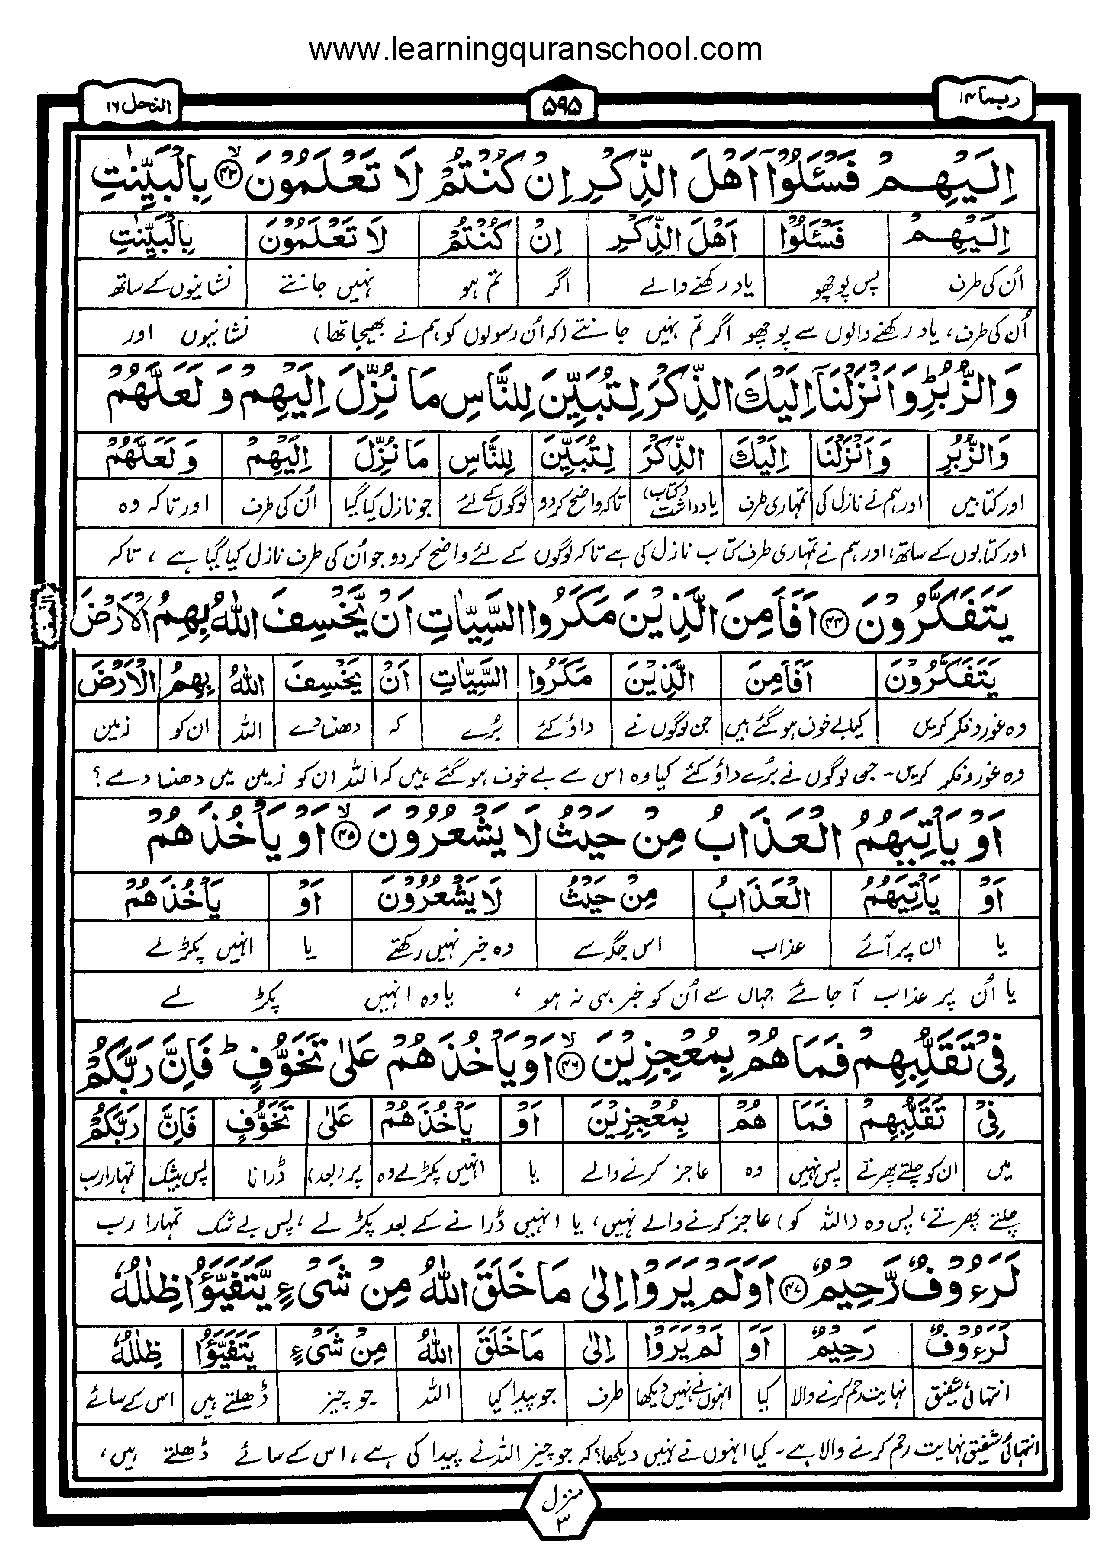 www.learningquranschool.com
ربما ۱۴
۵۹۵
النحل ۱۶
اِلَیْهِمْ فَسْئَلُوْۤا اَهْلَ الذِّكْرِ اِنْ كُنْتُمْ لَا تَعْلَمُوْنَ ۴۳ۙ بِالْبَیِّنٰتِ
اِلَیْهِمْ فَسْئَلُوْۤا اَهْلَ الذِّكْرِ اِنْ كُنْتُمْ لَا تَعْلَمُوْنَ بِالْبَیِّنٰتِ
اُن کی طرف پس پوچھو یاد رکھنے والے اگر تم ہو نہیں جانتے نشانیوں کے ساتھ
اُن کی طرف، یاد رکھنے والوں سے پوچھو اگر تم نہیں جانتے (کہ اُن رسولوں کو ہم نے بھیجا تھا) نشانیوں اور
وَالزُّبُرِ ؕ وَاَنْزَلْنَاۤ اِلَیْكَ الذِّكْرَ لِتُبَیِّنَ لِلنَّاسِ مَا نُزِّلَ اِلَیْهِمْ وَ لَعَلَّهُمْ
وَالزُّبُرِ وَاَنْزَلْنَا اِلَیْكَ الذِّكْرَ لِتُبَیِّنَ لِلنَّاسِ مَا نُزِّلَ اِلَیْهِمْ وَ لَعَلَّهُمْ
اور کتابیں اور ہم نے نازل کی تمہاری طرف یادداشت (کتاب) تاکہ واضح کر دو لوگوں کے لئے جو نازل کیا گیا اُن کی طرف اور تاکہ وہ
اور کتابوں کے ساتھ، اور ہم نے تمہاری طرف کتاب نازل کی ہے تاکہ لوگوں کے لئے واضح کر دو جو اُن کی طرف نازل کیا گیا ہے، تاکہ
یَتَفَكَّرُوْنَ ۴۴ اَفَاَمِنَ الَّذِیْنَ مَكَرُوا السَّیِّاٰتِ اَنْ یَّخْسِفَ اللهُ بِهِمُ الْاَرْضَ
یَتَفَكَّرُوْنَ اَفَاَمِنَ الَّذِیْنَ مَكَرُوا السَّیِّاٰتِ اَنْ یَّخْسِفَ اللهُ بِهِمُ الْاَرْضَ
وہ غور و فکر کریں کیا بے خوف ہو گئے ہیں جن لوگوں نے داؤ کئے بُرے کہ دھنسا دے اللہ ان کو زمین
وہ غور و فکر کریں۔ جن لوگوں نے بُرے داؤ کئے کیا وہ اس سے بے خوف ہو گئے ہیں کہ اللہ ان کو زمین میں دھنسا دے؟
اَوْ یَاْتِیَهُمُ الْعَذَابُ مِنْ حَیْثُ لَا یَشْعُرُوْنَ ۴۵ۙ اَوْ یَاْخُذَهُمْ
اَوْ یَاْتِیَهُمُ الْعَذَابُ مِنْ حَیْثُ لَا یَشْعُرُوْنَ اَوْ یَاْخُذَهُمْ
یا ان پر آئے عذاب اس جگہ سے وہ خبر نہیں رکھتے یا انہیں پکڑ لے
یا اُن پر عذاب آ جائے جہاں سے اُن کو خبر ہی نہ ہو، یا وہ انہیں پکڑ لے
فِیْ تَقَلُّبِهِمْ فَمَا هُمْ بِمُعْجِزِیْنَ ۴۶ۙ اَوْ یَاْخُذَهُمْ عَلٰی تَخَوُّفٍ ؕ فَاِنَّ رَبَّكُمْ
فِیْ تَقَلُّبِهِمْ فَمَا هُمْ بِمُعْجِزِیْنَ اَوْ یَاْخُذَهُمْ عَلٰی تَخَوُّفٍ فَاِنَّ رَبَّكُمْ
میں ان کو چلتے پھرتے پس نہیں وہ عاجز کرنے والے یا انہیں پکڑ لے وہ پر (بعد) ڈرانا پس بیشک تمہارا رب
چلتے پھرتے، پس وہ (اللہ کو) عاجز کرنے والے نہیں، یا انہیں ڈرانے کے بعد پکڑ لے، پس بے شک تمہارا رب
لَرَءُوْفٌ رَّحِیْمٌ ۴۷ اَوَلَمْ یَرَوْا اِلٰی مَا خَلَقَ اللهُ مِنْ شَیْءٍ یَّتَفَیَّؤُا ظِلٰلُهٗ
لَرَءُوْفٌ رَّحِیْمٌ اَوَ لَمْ یَرَوْا اِلٰی مَا خَلَقَ اللهُ مِنْ شَیْءٍ یَّتَفَیَّؤُا ظِلٰلُهٗ
انتہائی شفیق نہایت رحم کرنے والا کیا انہوں نے نہیں دیکھا طرف جو پیدا کیا اللہ جو چیز ڈھلتے ہیں اس کے سائے
انتہائی شفیق نہایت رحم کرنے والا ہے۔ کیا انہوں نے نہیں دیکھا؟ کہ جو چیز اللہ نے پیدا کی ہے، اس کے سائے ڈھلتے ہیں،
منزل ۳